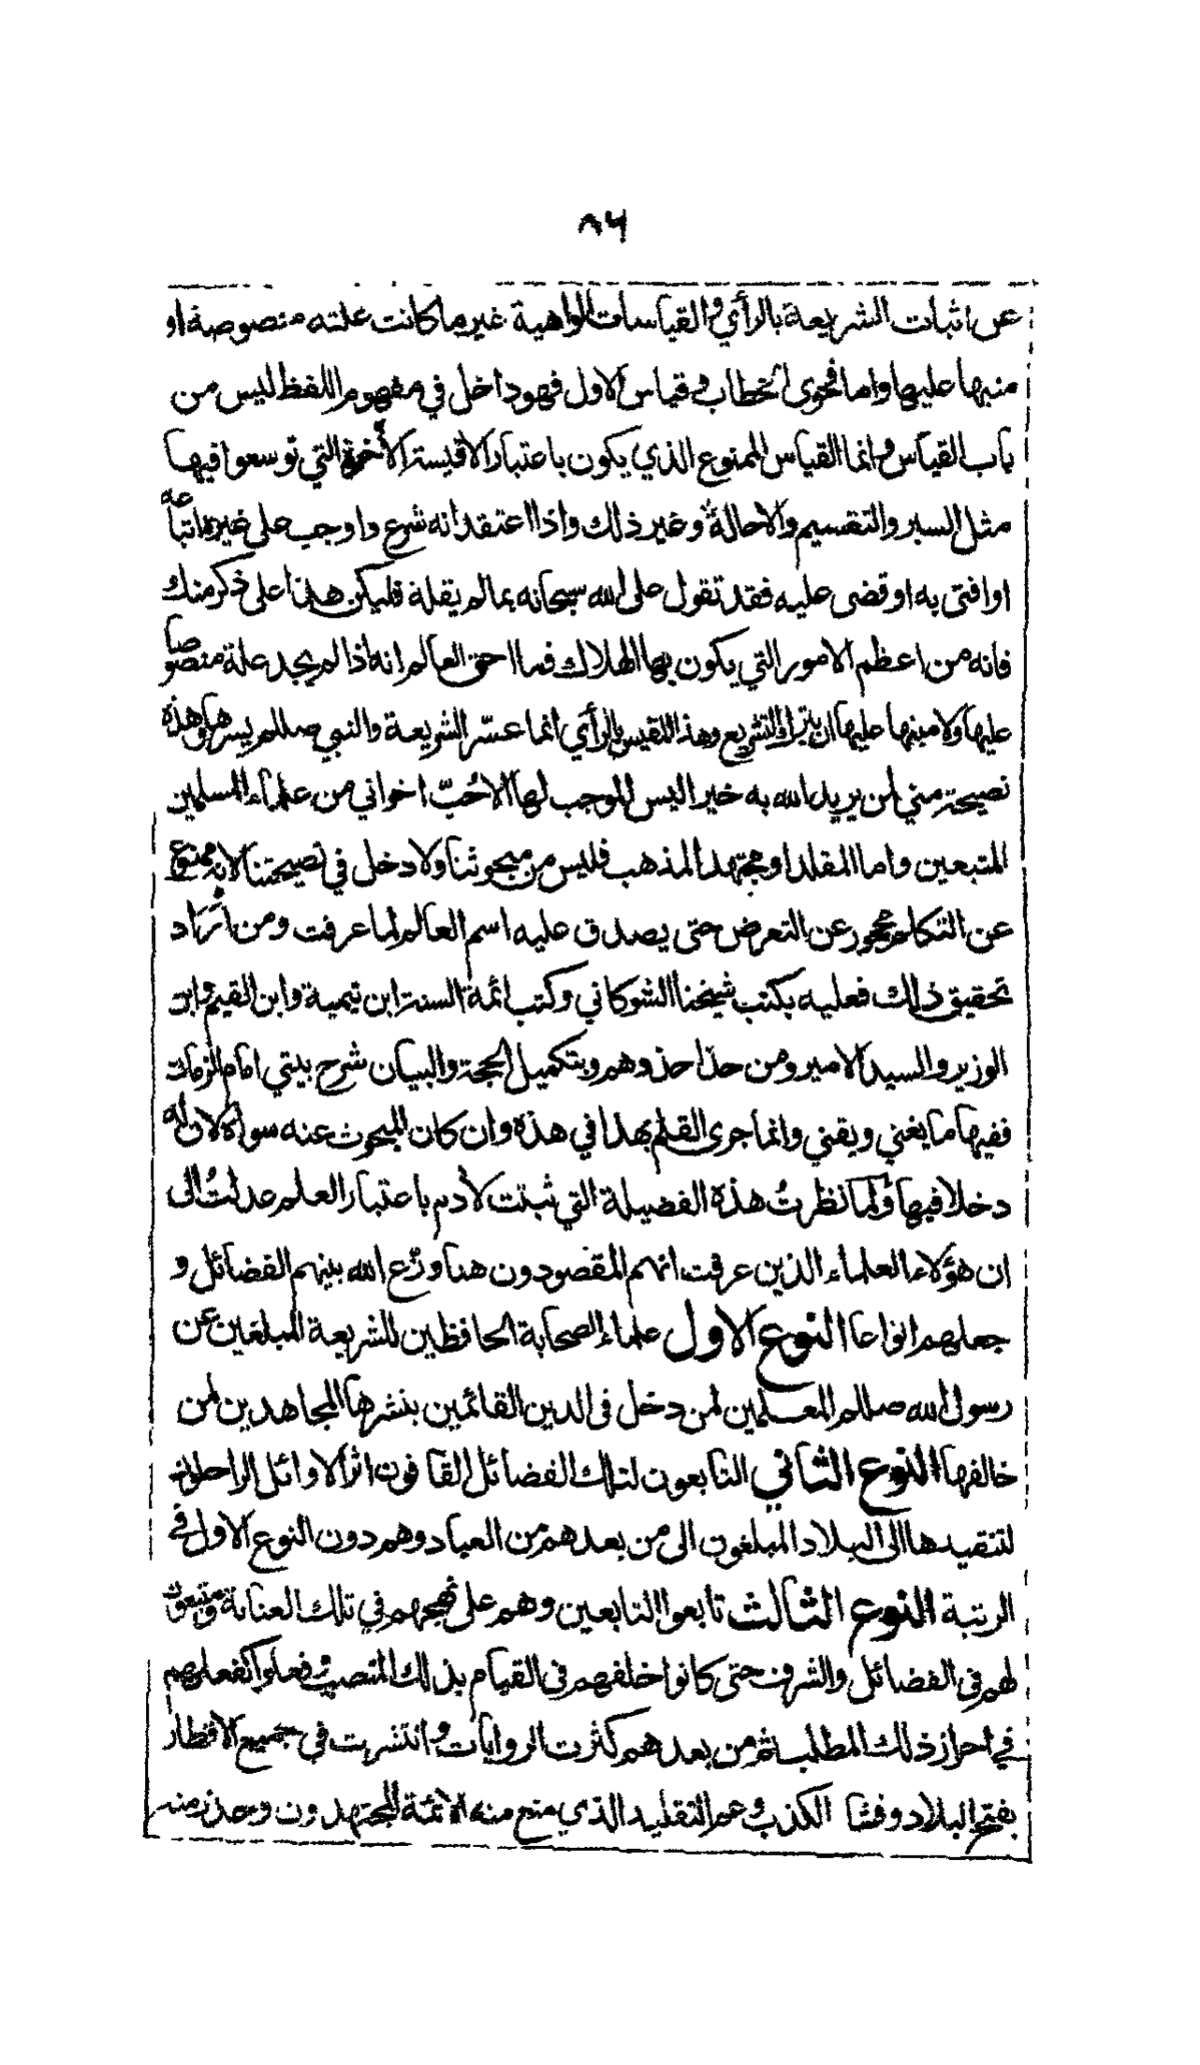 ٨٦
عن اثبات الشريعة بالرأي والقياسات الواهية غير ما كانت علته منصوصة او
منبها عليها واما فحوى الخطاب وقياس الاولى فهو داخل في مفهوم اللفظ ليس من
باب القياس وانما القياس الممنوع الذي يكون باعتبار الاقيسة الأخرة التي توسعوا فيها
مثل السبر والتقسيم والاحالة وغير ذلك واذا اعتقد انه شرع واوجب على غيره اتباعه
او افتى به او قضى عليه فقد تقول على الله سبحانه بما لم يقله فليكن هذا على ذكر منك
فانه من اعظم الامور التي يكون بها الهلاك فما احق العالم انه اذا لم يجد علة منصوصا
عليها ولا منبها عليها ان يترك التشريع وهذا القيس بالرأي انما عسّر الشريعة والنبي صللم يسرها وهذه
نصيحة مني لمن يريد الله به خيرا ليس الموجب لها الا حُبّ اخواني من علماء المسلمين
المتبعين واما المقلد او مجتهد المذهب فليس من مبحوثنا ولا دخل في نصيحتنا لانه ممنوع
عن التكلم محجور عن التعرض حتى يصدق عليه اسم العالم لما عرفت ومن اَرَاد
تحقيق ذلك فعليه بكتب شيخنا الشوكاني وكتب ائمة السنة ابن تيمية وابن القيم وابن
الوزير والسيد الامير ومن حذا حذوهم وبتكميل الحجة والبيان شرح بيتي امام الزمان
ففيها ما يغني ويقني وانما جرى القلم بهذا في هذه وان كان المبحوث عنه سواه لان له
دخلا فيها ولما نظرتُ هذه الفضيلة التي ثبتت لآدم باعتبار العلم عدلتُ الى
ان هؤلاء العلماء الذين عرفت انهم المقصودون هنا وزّع الله بينهم الفضائل و
جعلهم انواعا النوع الاول علماء الصحابة الحافظين للشريعة المبلغين عن
رسول الله صللم المعلمين لمن دخل في الدين القائمين بنشرها المجاهدين لمن
خالفها النوع الثاني التابعون لتلك الفضائل القافون اثر الاوائل الراحلون
لتنقيدها الى البلاد المبلغون الى من بعدهم من العباد وهم دون النوع الاول في
الرتبة النوع الثالث تابعوا التابعين وهم على نهجهم في تلك العناية ومتبعون
لهم في الفضائل والشرف حتى كانوا خلفهم في القيام بذلك المنصب وفعلوا كفعلهم
في احراز ذلك المطلب ثم من بعدهم كثرت الروايات وانتشرت في جميع الاقطار
بفتح البلاد وفشا الكذب وعم التقليد الذي منع منه الائمة المجتهدون وحذر منه